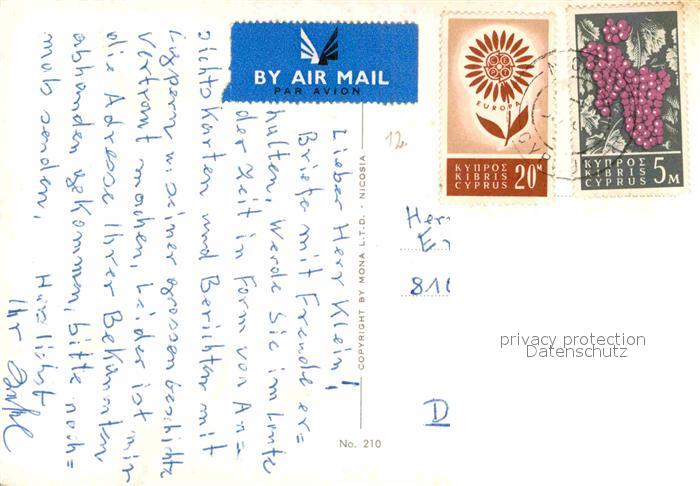 BY AIR MAIL
PAR AVION
EUROPA
ΚΥΠΡΟΣ
KIBRIS
CYPRUS
20 M
ΚΥΠΡΟΣ
KIBRIS
CYPRUS
5 M
12.
Lieber Herr Klein!
Briefe mit Freude er=
halten, Werde Sie im Laufe
der Zeit in Form von An=
sichtskarten und Berichten mit
Zypern u. seiner grossen Geschichte
Vertraut machen, Leider ist mir
die Adresse Ihrer Bekannten
abhanden gekommen, bitte noch=
mals senden,
Herzlichst
Ihr
COPYRIGHT BY MONA L.T.D. - NICOSIA
No. 210
Her
E
810
D
privacy protection
Datenschutz